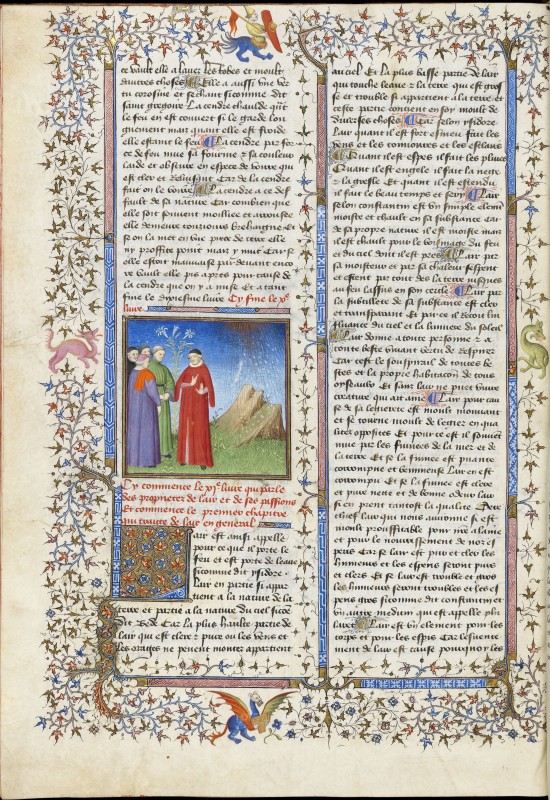 ce vault elle a laver les robes et moult
dautres choses Elle a aussi une ver
tu corosive et sechant sicomme dit
saint gregoire La cendre chaulde quant
le feu en est couvert si le garde lon
guement mais quant elle est froide
elle estaint le feu La cendre par for
ce de feu mue sa fourme et sa couleur
laide et obscure en espece de voirre qui
est cler et reluisant Car de la cendre
fait on le voirre La cendre a ce def
fault de sa nature Car combien que
elle soit souvent moilliee et arrousee
elle demeure tousiours brehaigne Et
se on la met en une piece de terre elle
ny prouffite point mais y nuit Car se
elle estoit mauvaise par devant enco
re vault elle pis apres pour cause de
la cendre que on y a mise Et a tant
fine le dixiesme livre Cy fine le xe
livre
Cy commence le xje livre qui parle
des proprietez de lair et de ses passions
Et commence le premier chapitre
qui traicte de lair en general
air est ainsi appelle
pour ce que il porte le
feu et est porte de leaue
sicomme dit ysidore
Lair en partie si appar
tient a la nature de la
terre et partie a la nature du ciel sicõe
dit Bede Car La plus haulte partie de
lair qui est clere et pure ou les vens et
les orages ne pevent monter appartient
au ciel Et la plus basse partie de lair
qui touche leaue et la terre qui est gros
se et trouble si appartient a la terre et
ceste partie contient en soy moult de
diverses choses Car selon ysidore
Lair quant il est fort esmeu fait les
vens et les tonnoires et les esclairs
Quant il est espes il fait les pluies
Quant il est engele il fait la nege
et la gresle Et quant il est estendu
il fait le beau temps et sery Lair
selon constantin est un simple eleme
moiste et chault en sa substance Car
de sa propre nature il est moiste mais
il est chault pour le voisinage du feu
et du ciel dont il est pres Lair par
sa moisteur et par sa chaleur sestent
et estent par tout des la terre iusques
au feu lassus en son cercle Lair par
la subtillete de sa substance est cler
et transparant Et par ce il recoit lin
fluance du ciel et la lumiere du soleil
Lair donne a toute personne et a
toute beste vivant vertu de respirer
Car cest le soustenail de toutes be
stes et la propre habitacon de tous
oyseaulx Et sans lair ne puet vivre
creature qui ait ame Lair pour cau
se de sa legierete est moult mouvant
et se tourne moult de legier en qua
litez opposites Et pource est il souvent
mue par les fumiers de la mer et de
la terre Et se la fumee est puante
corrompue et venimeuse Lair en est
corrompu Et se la fumee est clere
et pure nette et de bonne odeur lair
si en prent tantost la qualite Dere
chief lair qui nous avironne si est
moult prouffitable pour nre alaine
et pour le nourissement de noz es
peris Car se lair est pur et cler les
humeurs et les esperis seront purs
et clers Et se lair est trouble et gros
les humeurs seront troubles et les es
peris gros sicomme dit constantin et
un autre medicin qui est appelle phi
laret Lair est un element pour les
corps et pour les esperis Car lesmeuve
ment de lair est cause pourquoy les